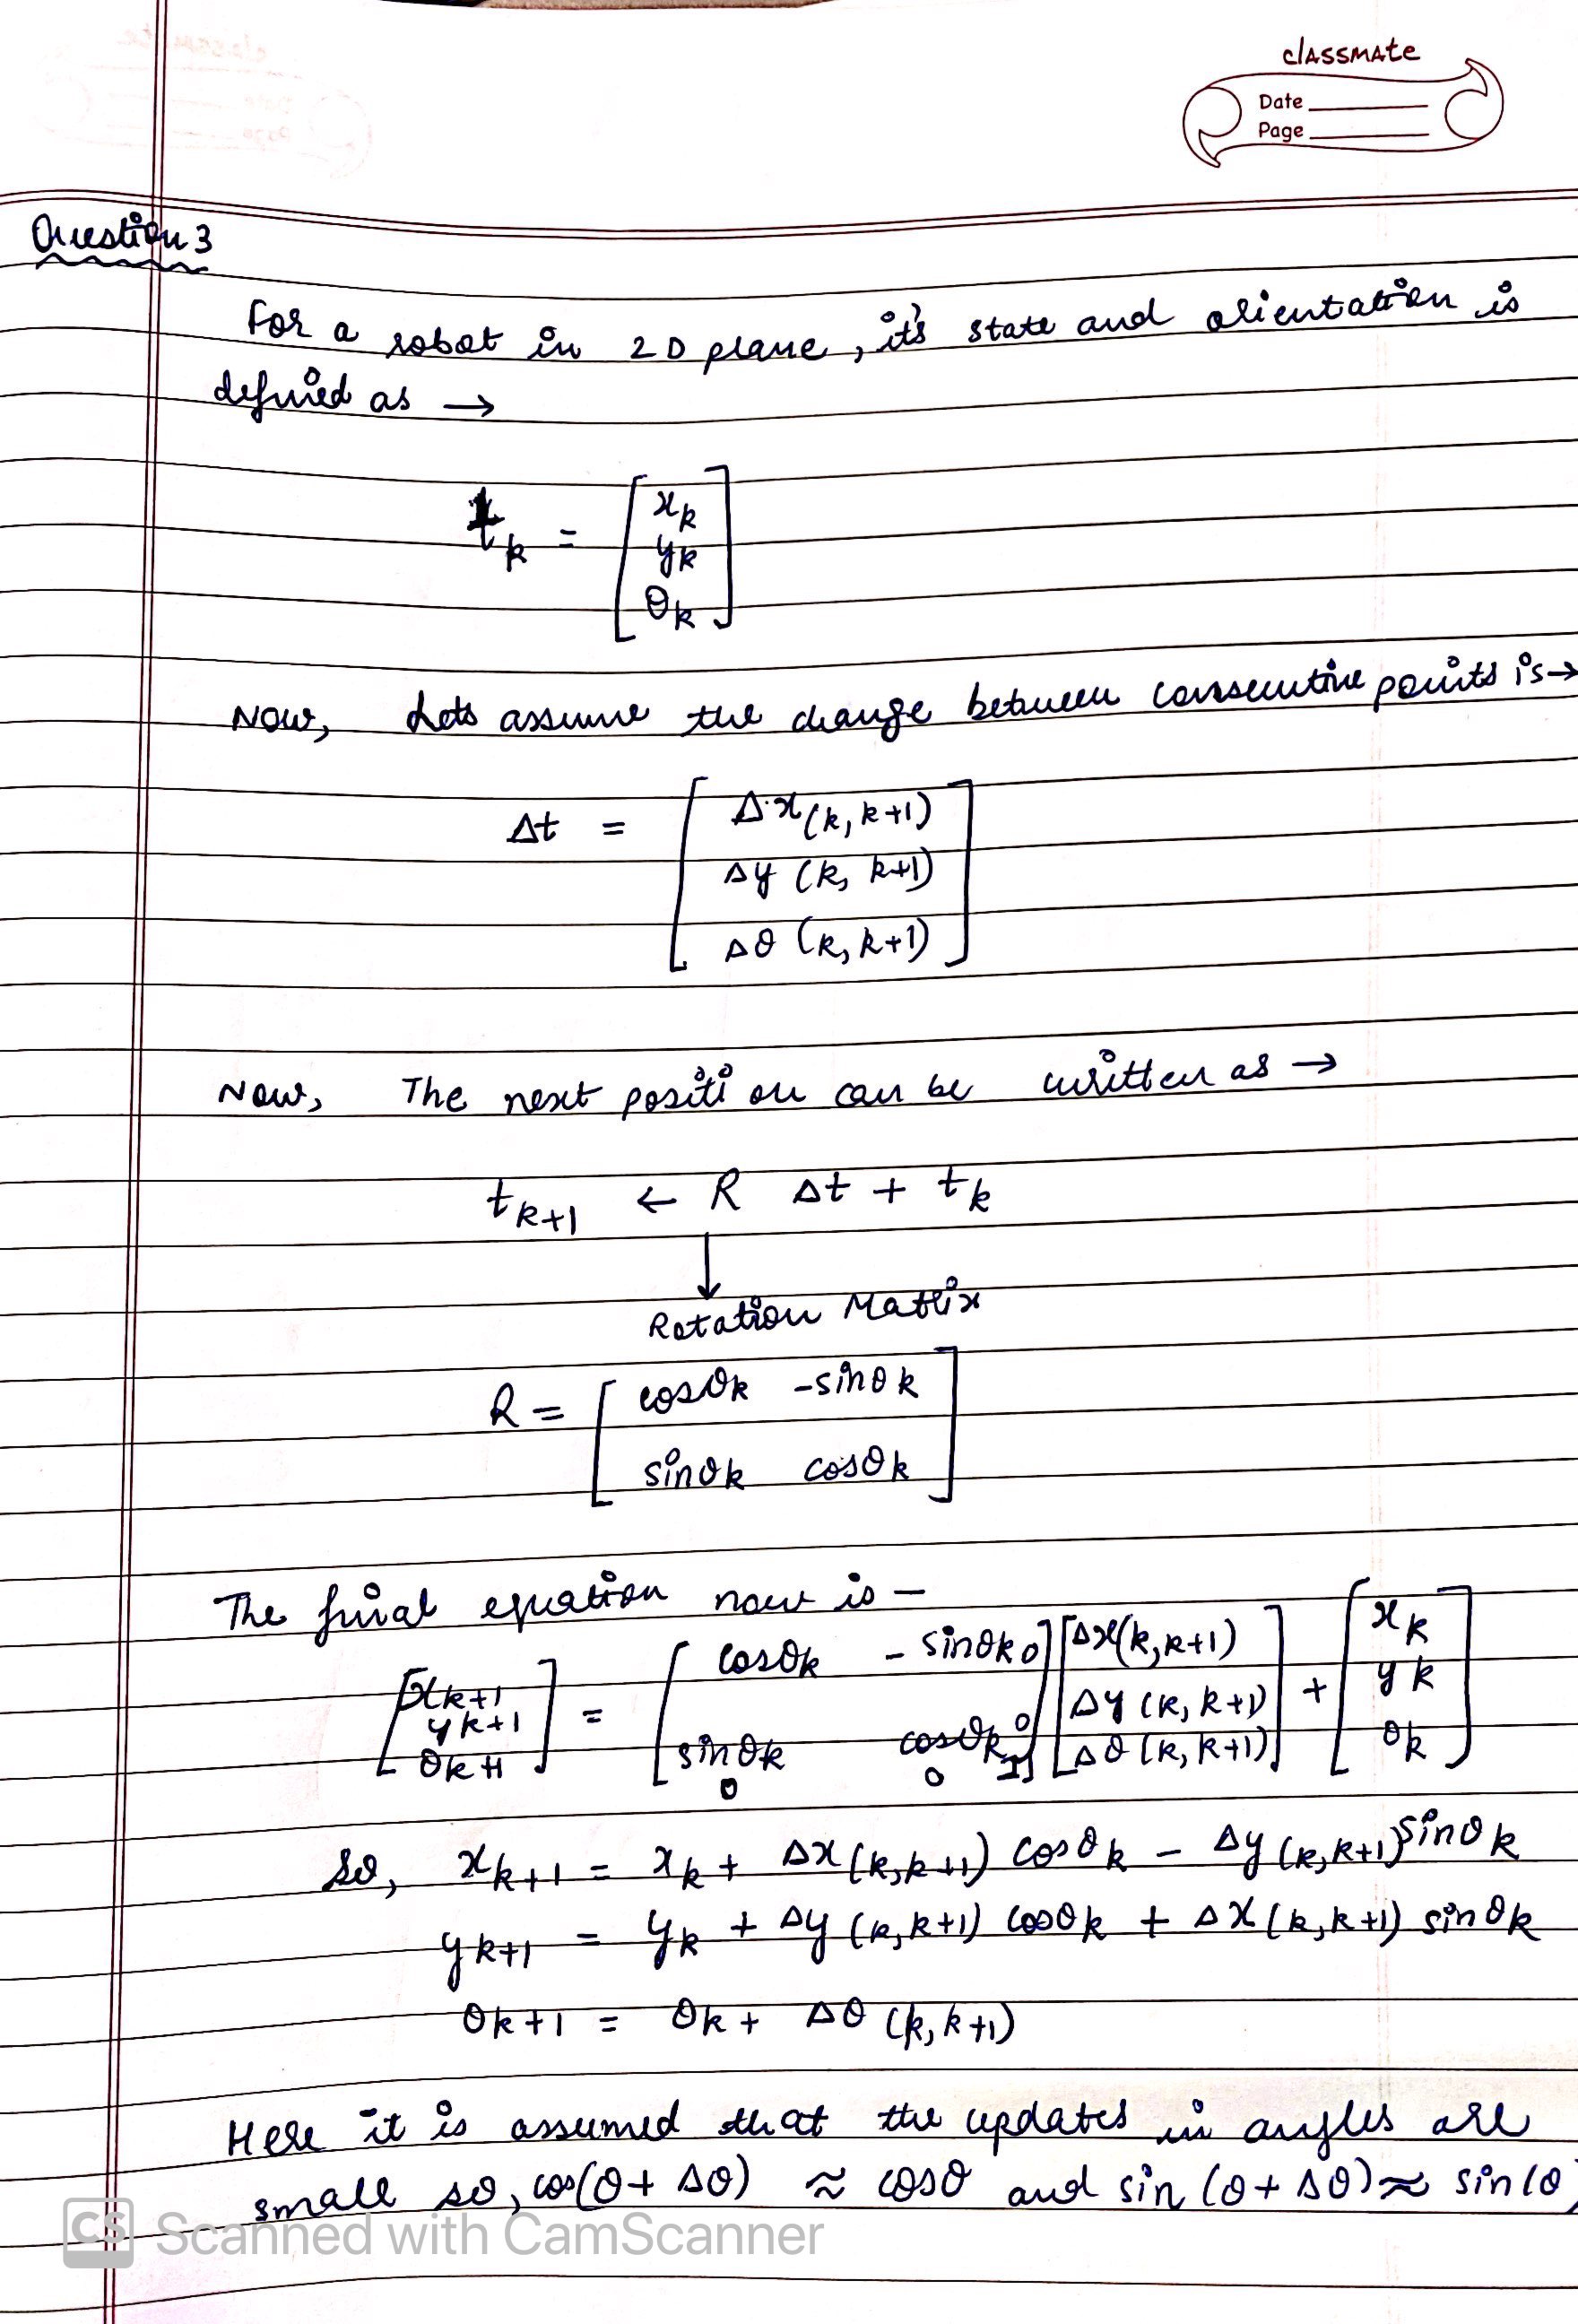 classmate
Date
Page
Question 3
For a robot in 2D plane, it's state and orientation is
defined as →
t_k = [ x_k
y_k
θ_k ]
Now, Lets assume the change between consecutive points is →
Δt = [ Δx (k, k+1)
Δy (k, k+1)
Δθ (k, k+1) ]
Now, The next position can be written as →
t_k+1 ← R Δt + t_k
↓
Rotation Matrix
R = [ cosθk -sinθk
sinθk cosθk ]
The final equation now is -
[ x_k+1 y_k+1 θ_k+1 ] = [ cosθk - sinθk 0 sinθk cosθk 0 0 0 1 ] [ Δx(k,k+1) Δy(k, k+1) Δθ(k, k+1) ] + [ x_k y_k θ_k ]
So, x_k+1 = x_k + Δx(k,k+1) cosθk - Δy(k,k+1) sinθk
y_k+1 = y_k + Δy(k,k+1) cosθk + Δx(k,k+1) sinθk
θk+1 = θk + Δθ (k, k+1)
Here it is assumed that the updates in angles are
small so, cos(θ + Δθ) ≈ cosθ and sin (θ + Δθ) ≈ sin(θ)
CS Scanned with CamScanner